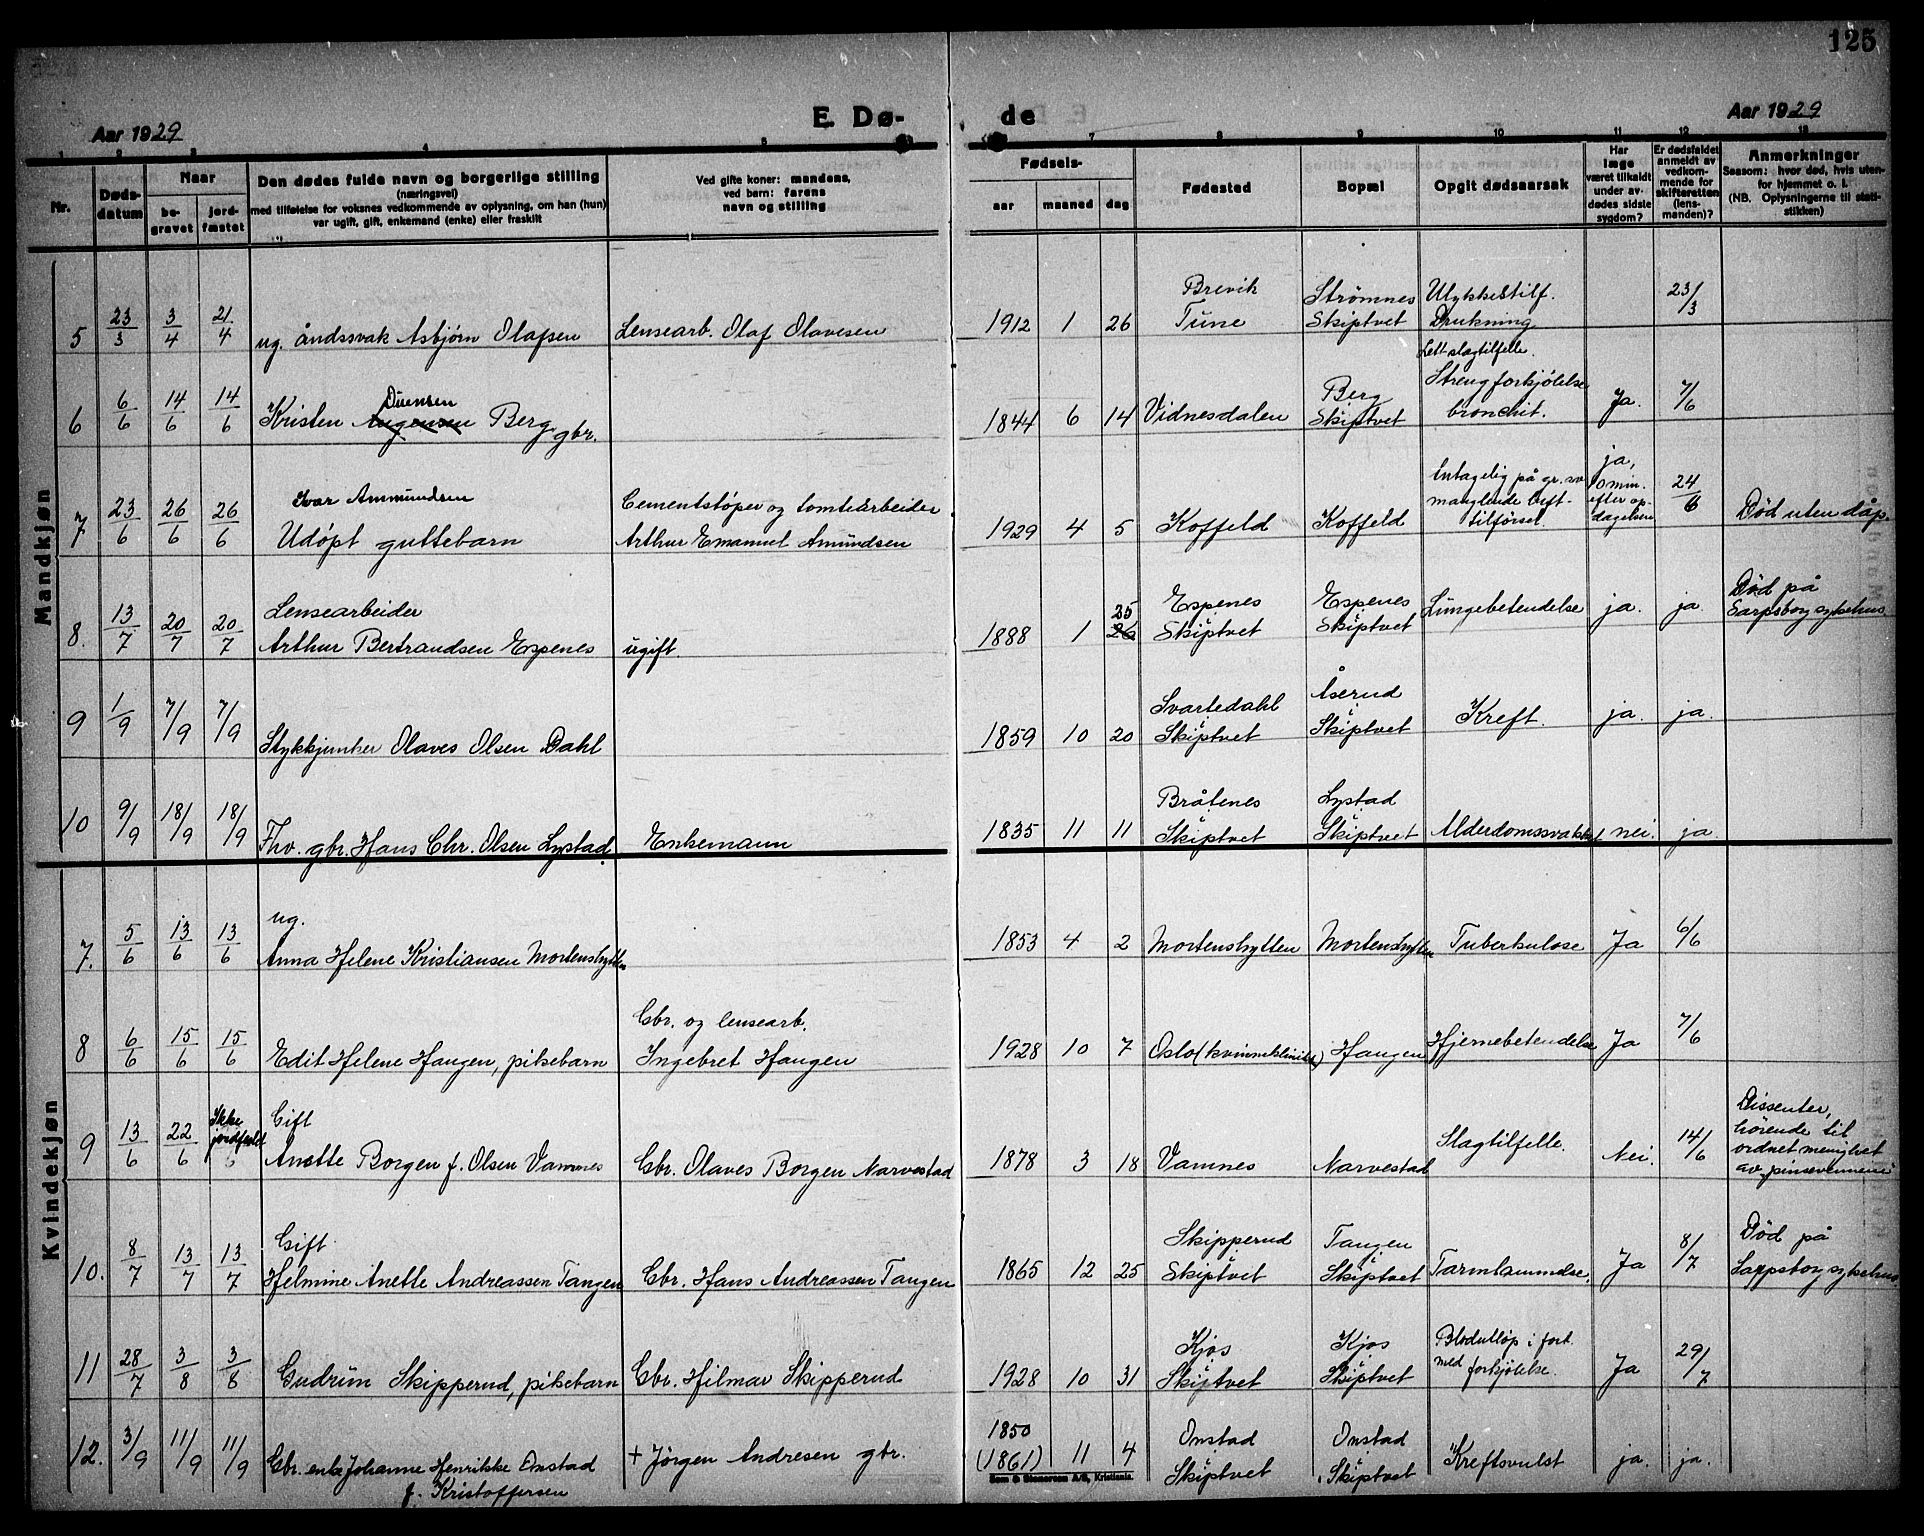 125
E. Dø- de
Aar 1929
Aar 1929
1 2 3 4 5 7 8 9 10 11 12 13
Nr.
Døds-
datum
Naar
be-
gravet
jord-
fæstet
Den dødes fulde navn og borgerlige stilling
(næringsvei)
med tilføielse for voksnes vedkommende av oplysning, om han (hun)
var ugift, gift, enkemand (enke) eller fraskilt
Ved gifte koner: mandens,
ved børn: farens
navn og stilling
Fødsels-
aar maaned dag
Fødested
Bopæl
Opgit dødsaarsak
Har
læge
været tilkaldt
under av-
dødes sidste
sygdom?
Er dødsfaldet
anmeldt av
vedkom-
mende for
skifteretten
(lens-
manden)?
Anmerkninger
Seasom: hvor død, hvis uten-
for hjemmet o. l.
(NB. Oplysningerne til stati-
stikken)
Mandkjøn
5 23/3 3/4 21/4 ug. åndssvak Asbjørn Olafsen Lensearb. Olaf Olavesen 1912 1 26 Brevik Tune Strømnes Skiptvet Ulykkestilf. Drukning 23/3
6 6/6 14/6 14/6 Kristen Duensen Berg gbr. 1844 6 14 Vidnesdalen Berg Skiptvet Lett slagtilfelle. Streng forkjølelse bronchit. Ja. 7/6
7 23/6 26/6 26/6 Ivar Ammundsen Udøpt guttebarn Cementstøper og tomtearbeider Arthur Emanuel Amundsen 1929 4 5 Koffeld Koffeld Antagelig på gr. av manglende luft- tilførsel ja, omm. efter op- dagelsen 24/6 Død uten dåp.
8. 13/7 20/7 20/7 Lensearbeider Arthur Bertrandsen Espenes ugift. 1888 1 25 26 Espenes Skiptvet Espenes Skiptvet Lungebetendelse ja. ja Død på Sarpsborg sykehus
9 1/9 7/9 7/9 Stykkjunker Olaves Olsen Dahl 1859 10 20 Svartedahl Skiptvet Åserud Skiptvet Kreft. ja. ja.
10 9/9 18/9 18/9 Fhv. gbr. Hans Chr. Olsen Lystad Enkemann 1835 11 11 Bråtenes Skiptvet Lystad Skiptvet Alderdomssvakhet nei. ja
Kvindekjøn
7. 5/6 13/6 13/6 ug. Anna Helene Kristiansen Mortenshytten 1853 4 2 Mortenshytten Mortenshytten Tuberkulose Ja 6/6
8 6/6 15/6 15/6 Edit Helene Haugen, pikebarn Gbr. og lensearb. Ingebret Haugen 1928 10 7 Oslo (kvinneklinikk) Haugen Hjernebetendelse Ja 7/6
9 13/6 22/6 Ikke jordfestet Gift Anette Borgen f. Olsen Vamnes Gbr. Olaves Borgen Narvestad 1878 3 18 Vamnes Narvestad Slagtilfelle. Nei. 14/6 Dissenter, hørende til ordnet menighet av "pinsevennene"
10. 8/7 13/7 13/7 Gift Helmine Anette Andreassen Tangen Gbr. Hans Andreassen Tangen 1865 12 25 Skipperud Skiptvet Tangen Skiptvet Tarmlammelse, Ja 8/7 Død på Sarpsborg sykehus
11 28/7 3/8 3/8 Gudrun Skipperud, pikebarn Gbr. Hilmar Skipperud 1928 10 31 Kjos Skiptvet Kjos Skiptvet Blodutløp i forb. med forkjølelse. Ja 29/7
12. 3/9 11/9 11/9 Gbr. enke Johanne Henrikke Onstad f. Kristoffersen + Jørgen Andresen gbr. 1850 (1861) 11 4 Onstad Skiptvet Onstad Skiptvet Kreftsvulst ja. ja.
Sem & Stenersen A/S, Kristiania